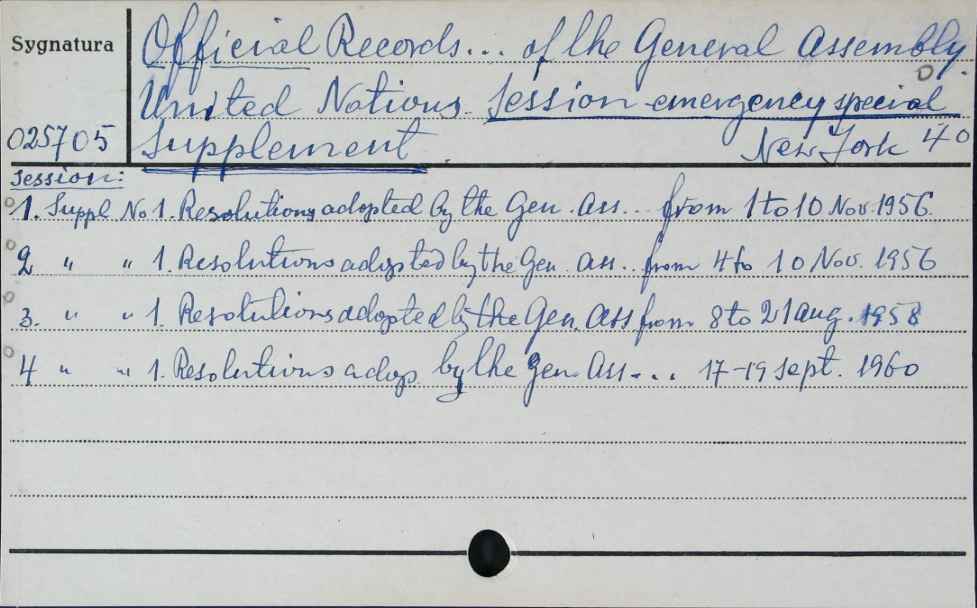 Sygnatura
Official Records... of the General Assembly.
United Nations Session emergency special
025705 Supplement New York 4o
Session:
1. Suppl. No 1. Resolutions adopted by the Gen. Ass... from 1 to 10 Nov. 1956.
2 " " 1. Resolutions adopted by the Gen. Ass.. from 4 to 10 Nov. 1956
3. " " 1. Resolutions adopted by the Gen. Ass from 8 to 21 aug. 1958
4 " " 1. Resolutions adop. by the Gen. Ass... 17-19 sept. 1960